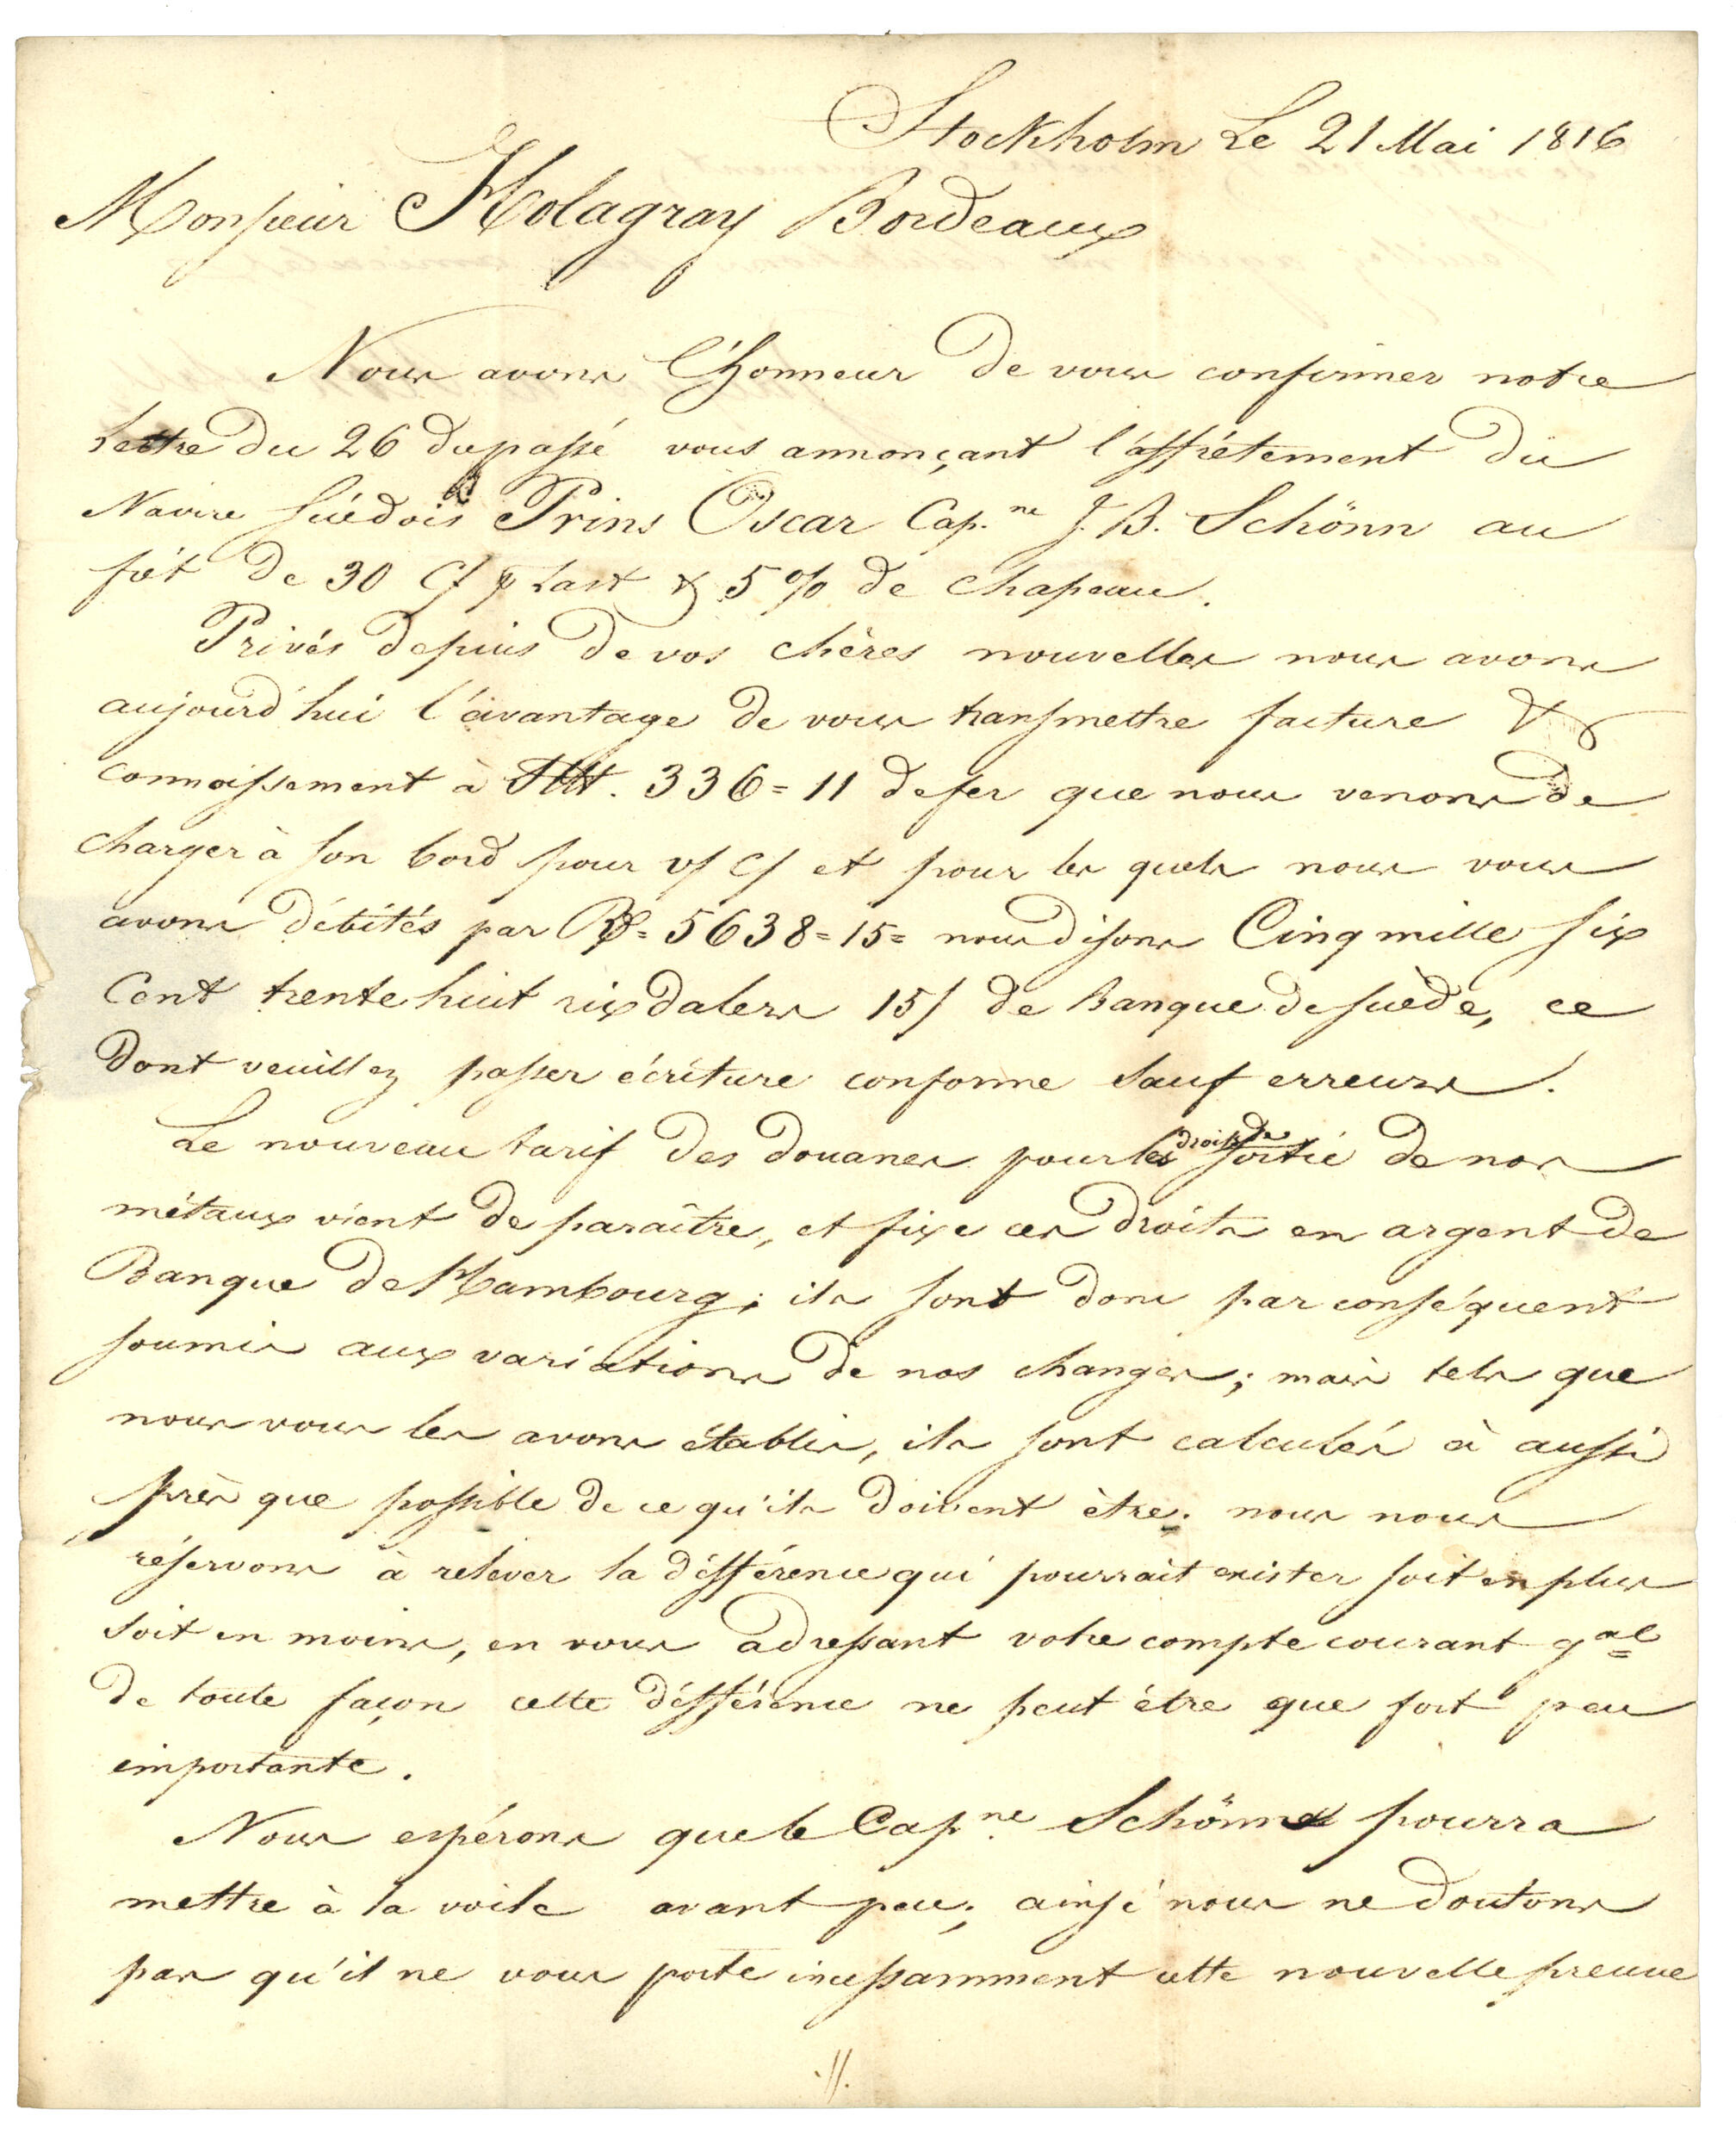 Stockholm Le 21 Mai 1816
Monsieur Holagray Bordeaux
Nous avons l'honneur de vous confirmer notre
Lettre du 26 du passé vous annonçant l'affrétement du
Navire suédois Prins Oscar Cap.ne J. B. Schönn au
frét de 30 p Last & 5 % de chapeau.
Privés depuis de vos chères nouvelles nous avons
aujourd'hui l'avantage de vous transmettre facture &
connoissement à 336=11 de fer que nous venons de
charger à son bord pour v/ c/ et pour les quels nous vous
avons débités par 5638=15= nous disons Cinq mille six
Cent trente huit rixdalers 15/ de Banque de suède, ce
dont veuillez passer écriture conforme sauf erreurs.
Le nouveau tarif des douanes pour les droits de sortie de nos
métaux vient de paraître, et fixe ces droits en argent de
Banque de Hambourg; ils sont donc par conséquent
soumis aux variations de nos changes; mais tels que
nous vous les avons établis, ils sont calculés à aussi
près que possible de ce qu'ils doivent être. nous nous
réservons à relever la différence qui pourrait exister soit en plus
soit en moins, en vous adressant votre compte courant gal
de toute façon cette différence ne peut être que fort peu
importante.
Nous espérons que le Capne Schönn pourra
mettre à la voile avant peu; ainsi nous ne doutons
pas qu'il ne vous porte incessamment cette nouvelle preuve
.//.